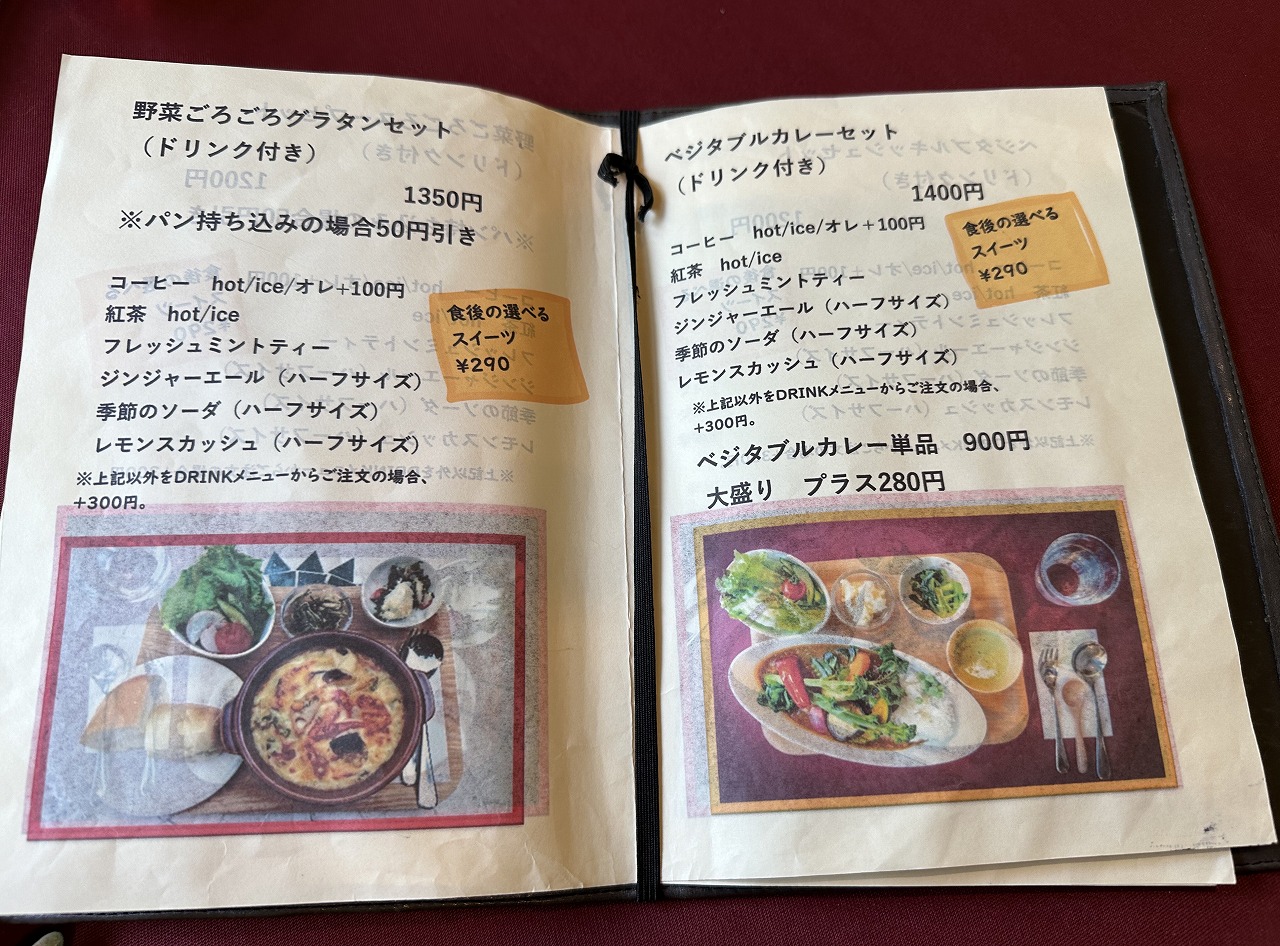 野菜ごろごろグラタンセット
（ドリンク付き）
1350円
※パン持ち込みの場合50円引き
コーヒー　hot/ice/オレ+100円
紅茶　hot/ice
フレッシュミントティー
ジンジャーエール（ハーフサイズ）
季節のソーダ（ハーフサイズ）
レモンスカッシュ（ハーフサイズ）
※上記以外をDRINKメニューからご注文の場合、
+300円。
食後の選べる
スイーツ
¥290
ベジタブルカレーセット
（ドリンク付き）
1400円
コーヒー　hot/ice/オレ＋100円
紅茶　hot/ice
フレッシュミントティー
ジンジャーエール（ハーフサイズ）
季節のソーダ（ハーフサイズ）
レモンスカッシュ（ハーフサイズ）
※上記以外をDRINKメニューからご注文の場合、
+300円。
食後の選べる
スイーツ
¥290
ベジタブルカレー単品　900円
大盛り　プラス280円